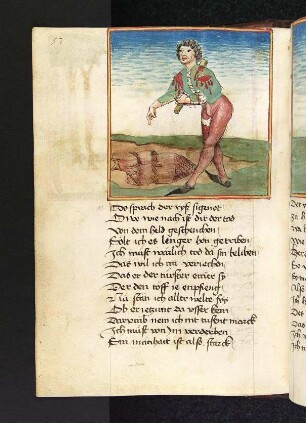 57
Do sprach der ryß sigenot
O we wie nach ist dir der tod
Von dem held geschenchen
Sölt ich es lenger hon getriben
Ich müst wärlich tod da sin beliben
Das wil ich im veriechen
Das er der türster einer sy
Der den toff ie enpfieng
Nu stan ich aller welte fry
Ob er ietzunt da vsser
Darvmb nem ich nit tusent marck
Ich müst von Im verderben
Sin manhait ist also starck